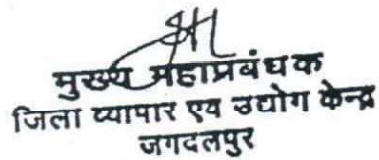 मुख्य महाप्रबंधक
जिला व्यापार एव उद्योग केन्द्र
जगदलपुर